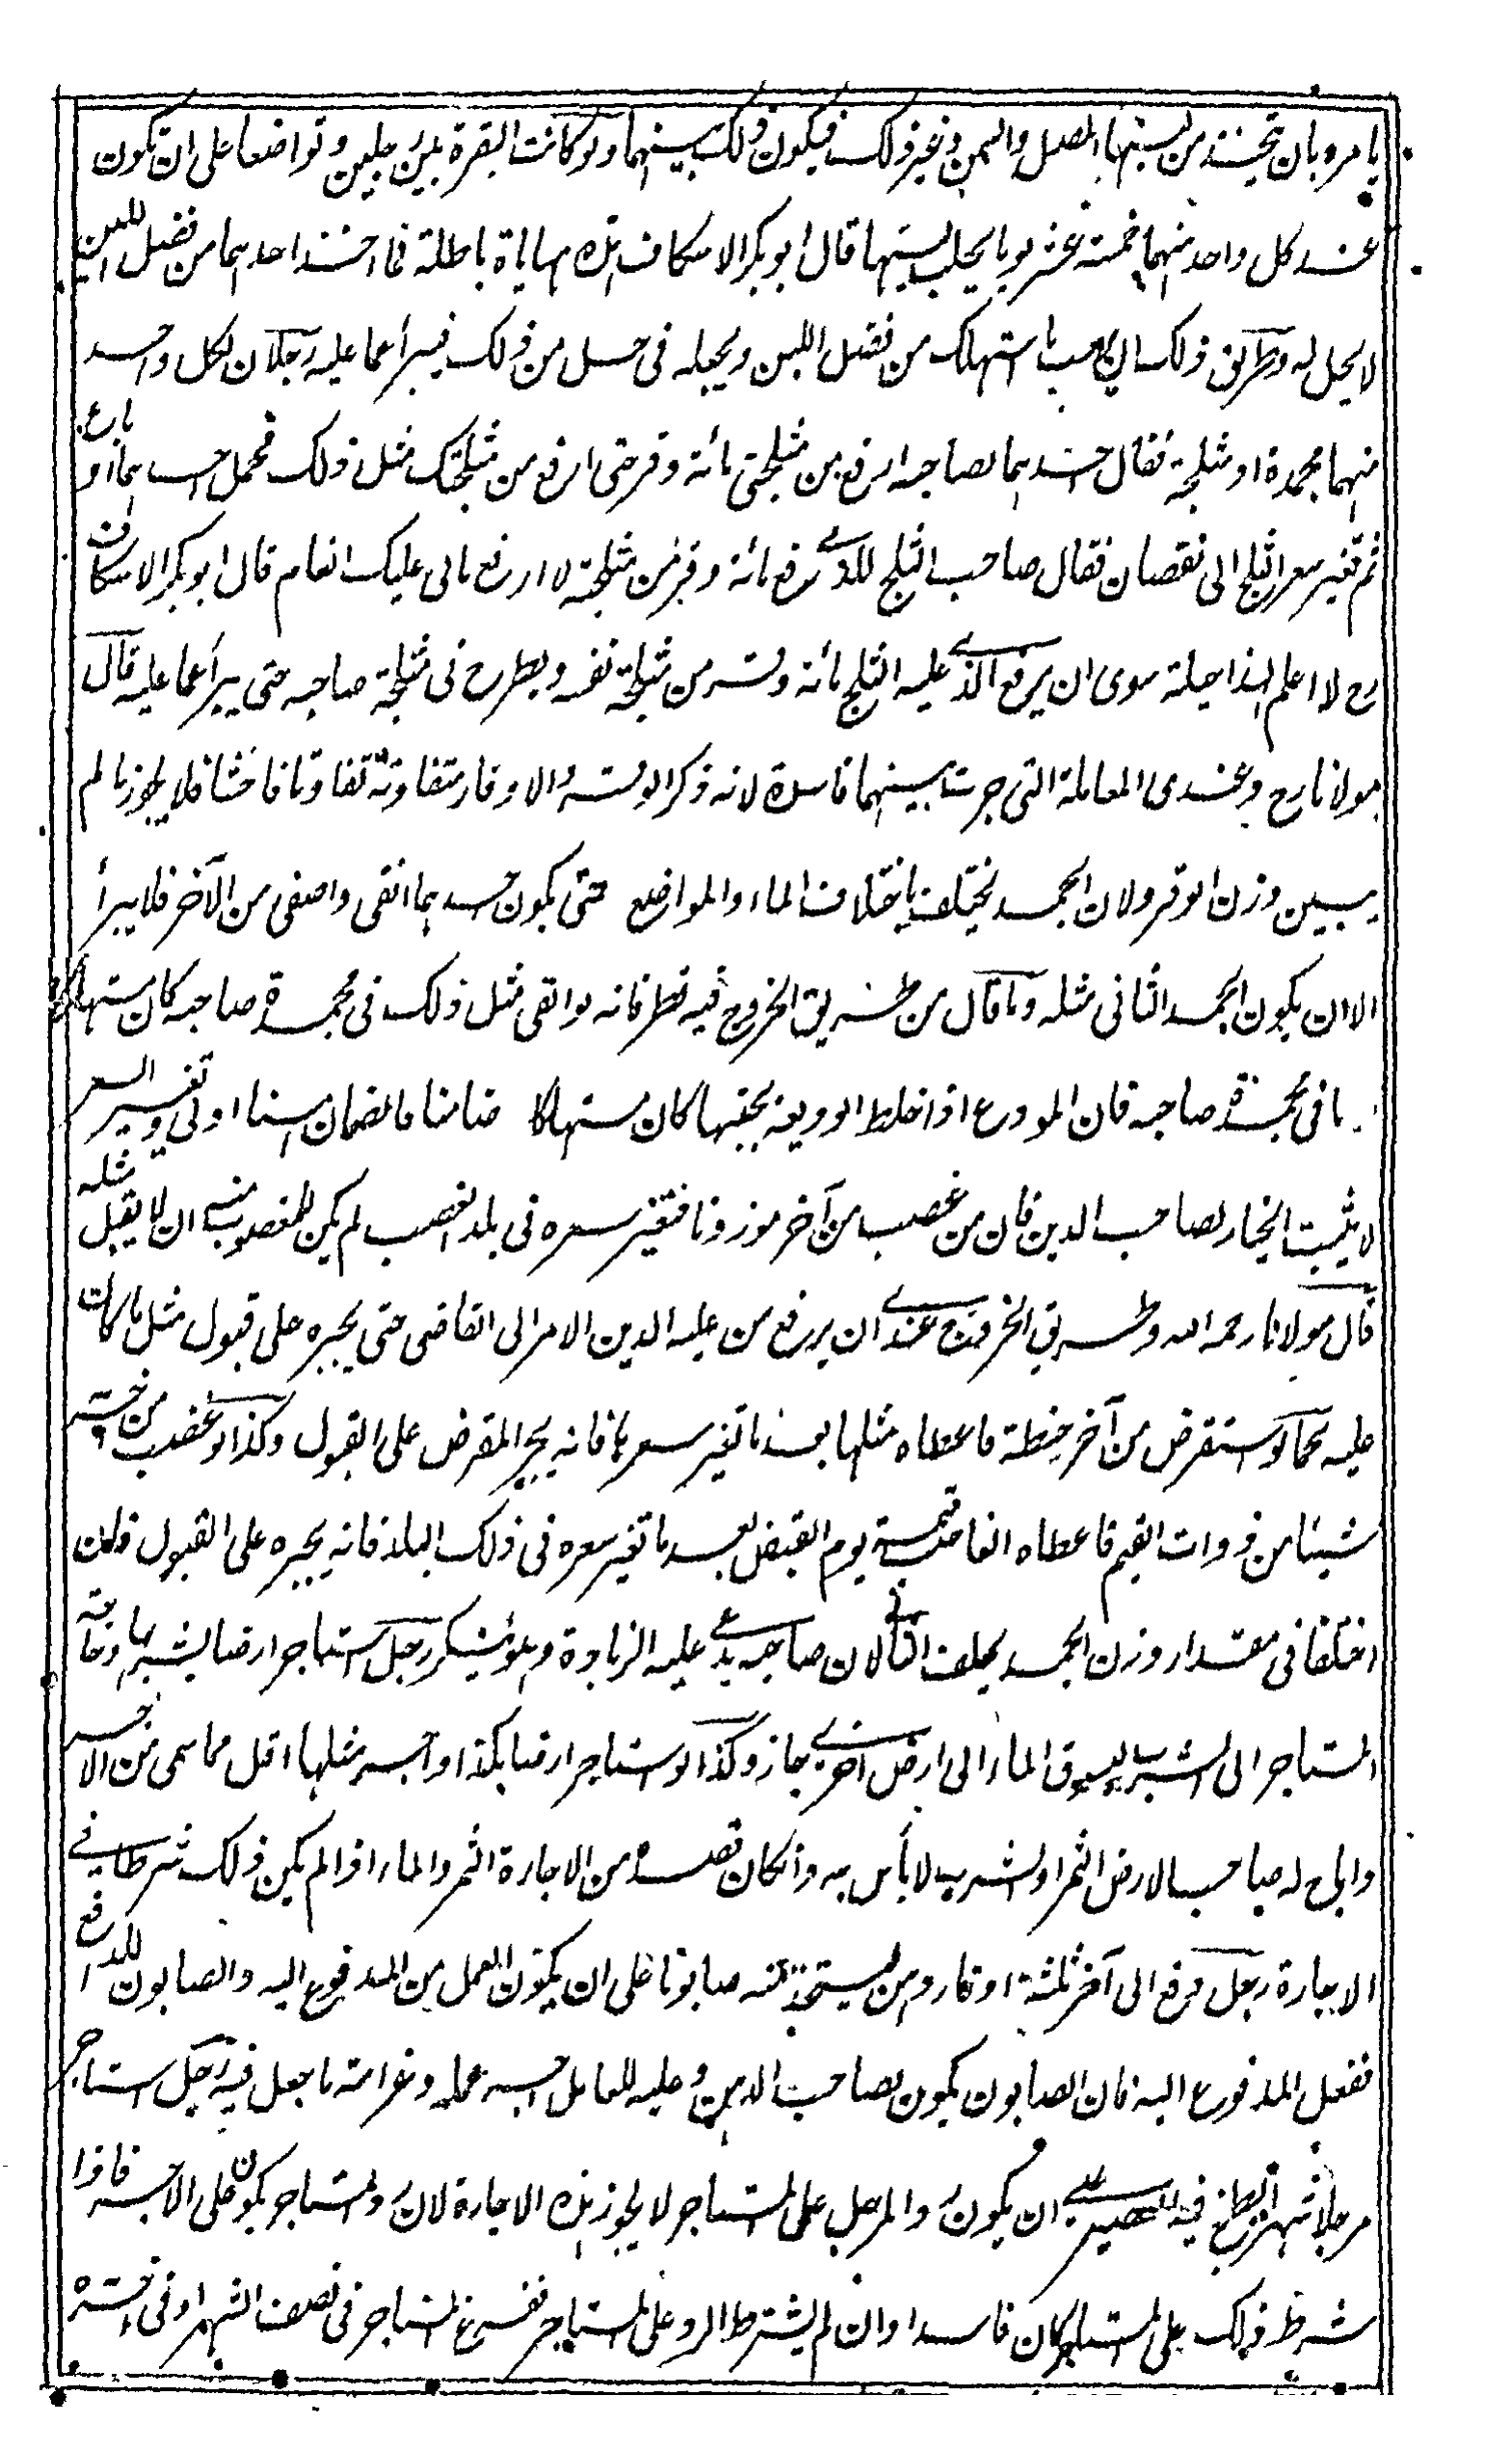 يامره بان يتخذ من لبنها المصل والسمن وغير ذلك فيكون ذلك بينهما ولو كانت البقرة بين رجلين وتواضعا على ان تكون
عند كل واحد منهما خمسة عشر يوما يحلب لبنها قال ابو بكر الاسكاف هذه مهاياة باطلة فما اخذ احدهما من فضل اللبن
لا يحل له وطريق ذلك ان يهب ما استهلك من فضل اللبن ويجعله فى حل من ذلك فيبرأ عما عليه رجلان لكل واحد
منهما مجمدة او مثلجة فقال احدهما لصاحبه ارفع من مثلجتى مائة وقر حتى ارفع من مثلجتك مثل ذلك فحمل احدهما او باع
ثم تغير سعر الثلج الى نقصان فقال صاحب الثلج للذى رفع مائة وقر من مثلجته لا ارفع مالى عليك العام قال ابو بكر الاسكاف
رح لا اعلم لهذا حيلة سوى ان يرفع الذى عليه الثلج مائة وقر من مثلجة نفسه ويطرح فى مثلجة صاحبه حتى يبرأ عما عليه قال
مولانا رح وعندى المعاملة التى جرت بينهما فاسدة لانه ذكر الوقر والاوقار متفاوتة تفاوتا فاحشا فلا يجوز ما لم
يبين وزن الوقر ولان الجمد يختلف باختلاف الماء والمواضع حتى يكون احدهما انقى واصفى من الآخر فلا يبرأ
الا ان يكون الجمد الثانى مثله وما قال من طريق الخروج فيه نظر فانه لو القى مثل ذلك فى مجمدة صاحبه كان مستهلكا
ما فى مجمدة صاحبه فان المودع اذا خلط الوديعة بجنسها كان مستهلكا ضامنا فالضمان هنا اولى وتغير السعر
لا يثبت الخيار لصاحب الدين فان من غصب من آخر موزونا فتغير سعره فى بلد الغصب لم يكن للمغصوب منه ان لا يقبل مثله
قال مولانا رحمه الله وطريق الخروج عندى ان يرفع من عليه الدين الامر الى القاضى حتى يجبره على قبول مثل ما كان
عليه كما لو استقرض من آخر حنطة فاعطاه مثلها بعد ما تغير سعرها فانه يجبر المقرض على القبول وكذا لو غصب من آخر
شيئا من ذوات القيم فاعطاه الغاصب قيمته يوم القبض بعد ما تغير سعره فى ذلك البلد فانه يجبره على القبول فان
اختلفا فى مقدار وزن الجمد يحلف الثانى لان صاحبه يدعى عليه الزيادة وهو ينكر رجل استاجر ارضا بشربها وساقه
المستاجر الى الشرب ليسوق الماء الى ارض اخرى جاز وكذا لو استاجر ارضا بكذا واجر مثلها اقل مما سمى من الاجر
واباح له صاحب الارض الثمر او الشرب لا بأس به وان كان قصده من الاجارة الثمر والماء اذا لم يكن ذلك شرطا فى
الاجارة رجل دفع الى آخر ثلثة اوقار دهن ليتخذ منه صابونا على ان يكون العمل من المدفوع اليه والصابون للدافع
ففعل المدفوع اليه فان الصابون يكون لصاحب الدهن وعليه للعامل اجر عمله وغرامة ما جعل فيه رجل استاجر
مرجلا شهرا ليطبخ فيه العصير على ان يكون رد المرجل على المستاجر لا يجوز هذه الاجارة لان رد المستاجر يكون على الآجر فاذا
شرط ذلك على المستاجر كان فاسدا وان لم يشترط الرد على المستاجر ففرغ المستاجر فى نصف الشهر او فى آخره